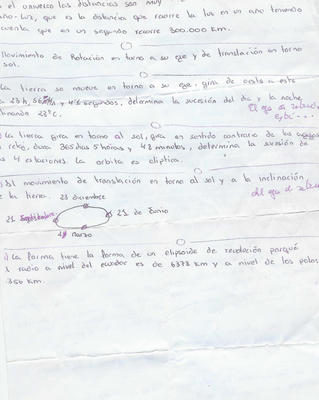 el universo las distancias son muy
año-luz, que es la distancia que recorre la luz en un año teniendo
cuenta que en un segundo recorre 300.000 km.
Movimiento de Rotación en torno a su eje y de translación en torno
sol.
La tierra se mueve en torno a su eje, gira de oeste a este
23h, 56 min y 4 segundos, determina la sucesión del dia y la noche
23°C.
El eje de
La tierra gira en torno al sol, gira en sentido contrario de las
reloj, dura 365 dias 5 horas y 48 minutos, determina la sucesión de
s 4 estaciones. La orbita es eliptica.
El movimiento de translación en torno al sol y a la inclinación
e la tierra. 21 diciembre
del eje de
21 Septiembre
21 de Junio
21 Marzo
La forma tiene la forma de un elipsoide de revolución porqué
radio a nivel del ecuador es de 6378 km y a nivel de los polos
356 km.